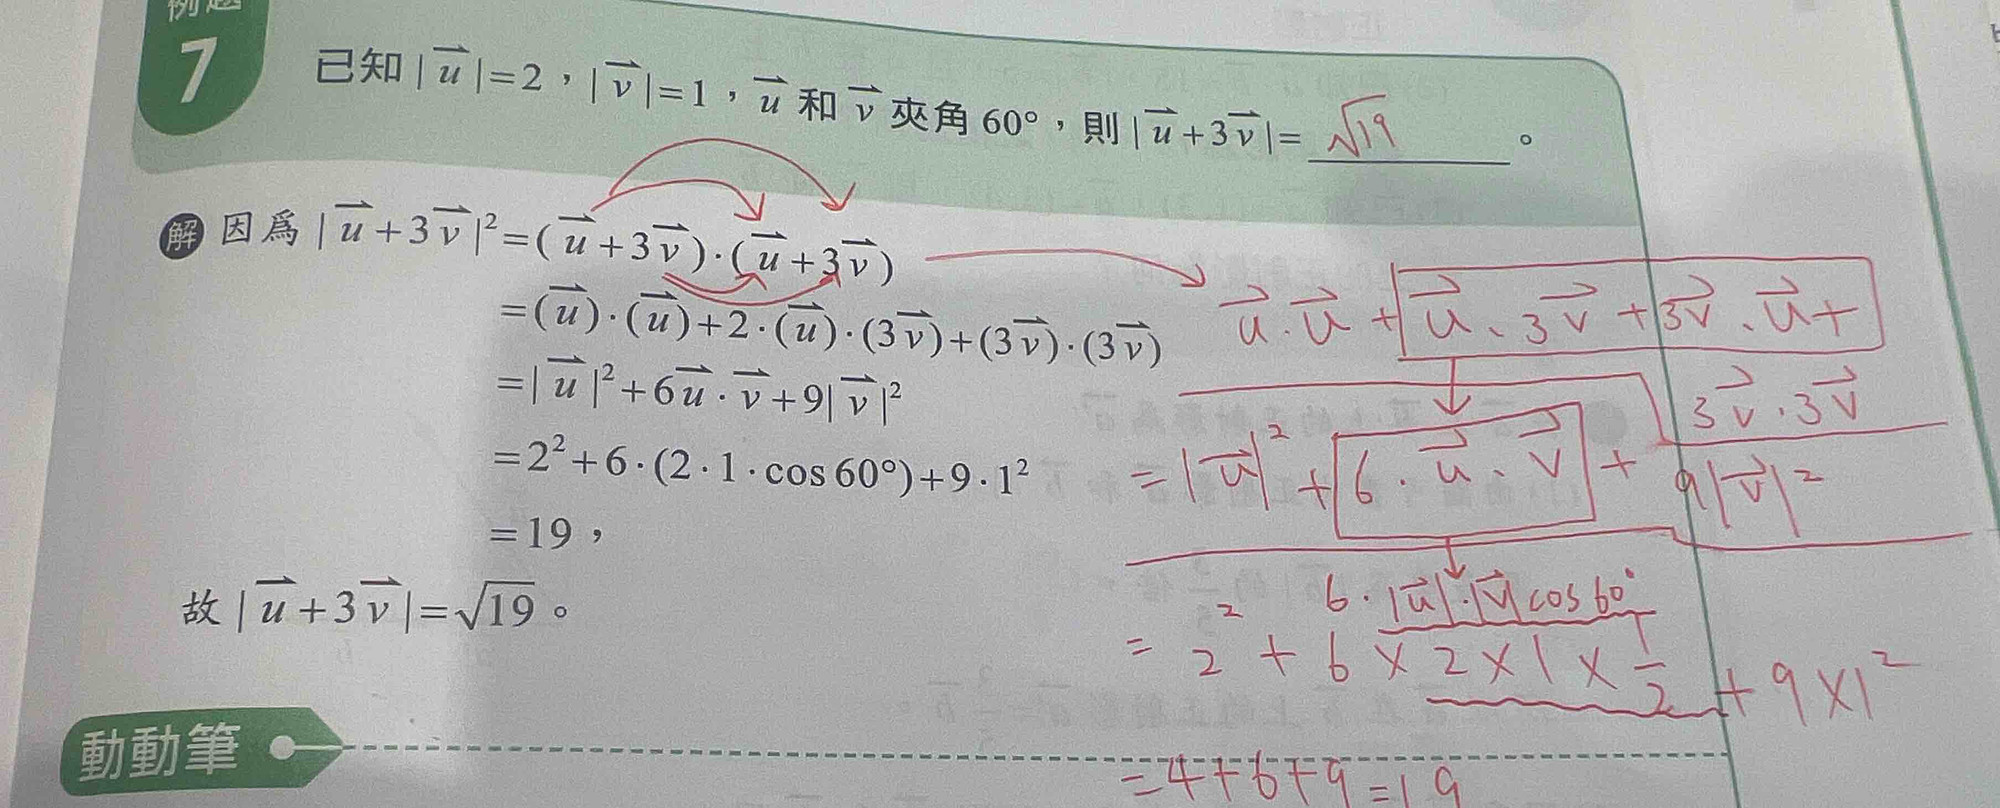 例題
7
已知 | u⃗ | = 2 , | v⃗ | = 1 , u⃗ 和 v⃗ 夾角 60° , 則 | u⃗ + 3v⃗ | = √19 。
解 因為 | u⃗ + 3v⃗ |² = ( u⃗ + 3v⃗ ) · ( u⃗ + 3v⃗ )
= (u⃗) · (u⃗) + 2 · (u⃗) · (3v⃗) + (3v⃗) · (3v⃗)
= | u⃗ |² + 6u⃗ · v⃗ + 9| v⃗ |²
= 2² + 6 · (2 · 1 · cos 60°) + 9 · 1²
= 19 ,
故 | u⃗ + 3v⃗ | = √19 。
u⃗ · u⃗ + u⃗ · 3v⃗ + 3v⃗ · u⃗ +
3v⃗ · 3v⃗
= |u⃗|² + 6 · u⃗ · v⃗ + 9|v⃗|²
6 · |u⃗| · |v⃗| cos 60°
= 2² + 6 × 2 × 1 × 1/2 + 9 × 1²
= 4 + 6 + 9 = 19
動動筆